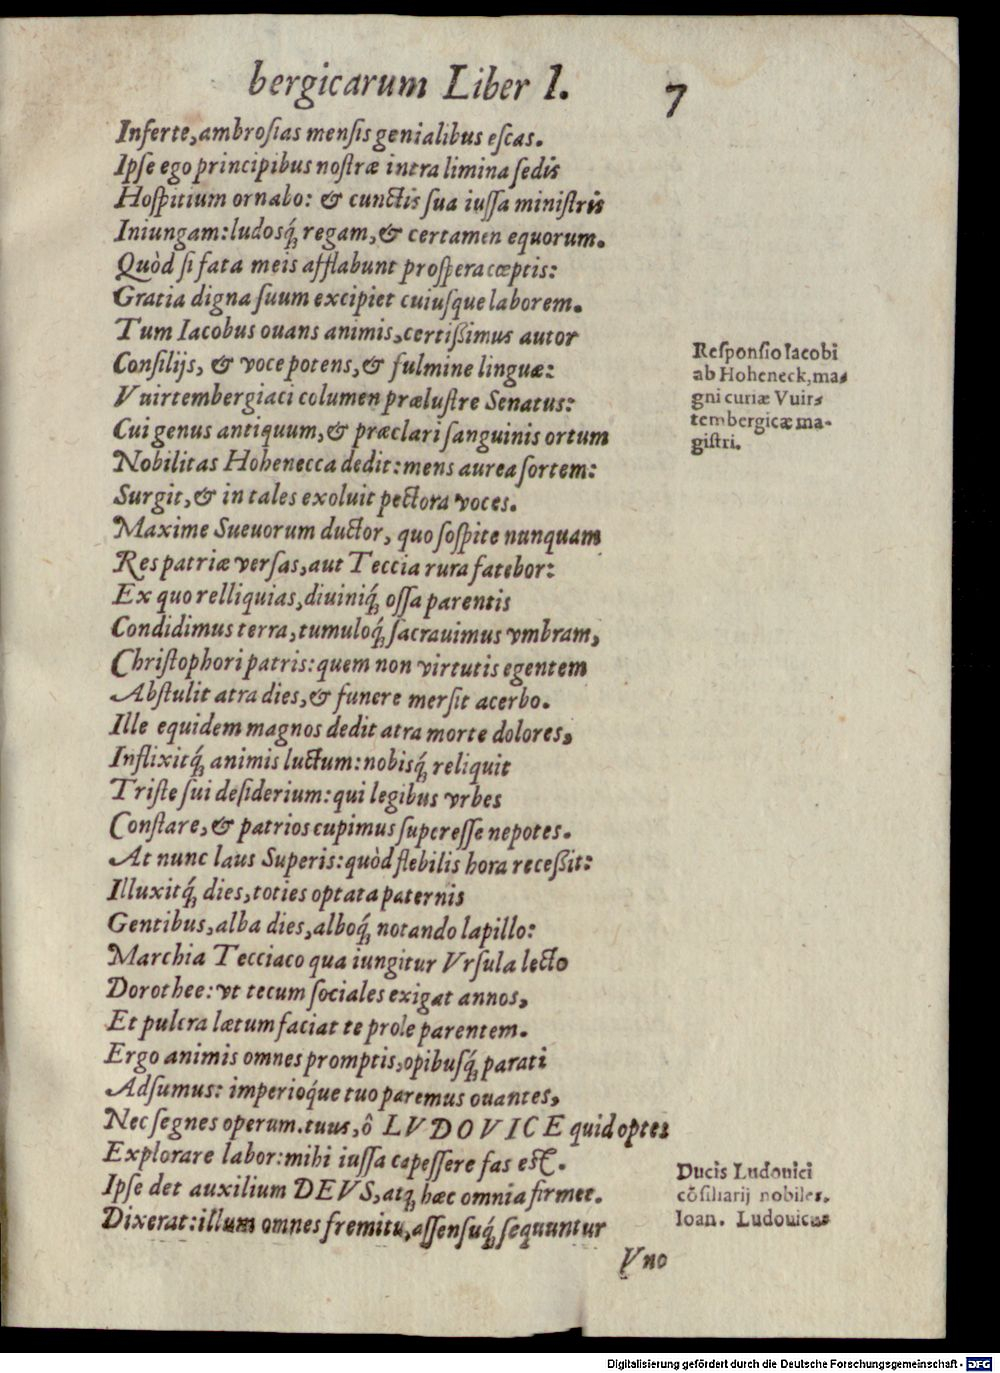 bergicarum Liber 1. 7
Inferte, ambrosias mensis genialibus escas.
Ipse ego principibus nostræ intra limina sedis
Hospitium ornabo: & cunctis sua iussa ministris
Iniungam: ludosq́; regam, & certamen equorum.
Quòd si fata meis afflabunt prospera cœptis:
Gratia digna suum excipiet cuiusque laborem.
Tum Iacobus ouans animis, certißimus autor
Consilijs, & voce potens, & fulmine linguæ:
Vuirtembergiaci columen prælustre Senatus:
Cui genus antiquum, & præclari sanguinis ortum
Nobilitas Hohenecca dedit: mens aurea sortem:
Surgit, & in tales exoluit pectora voces.
Maxime Sueuorum ductor, quo sospite nunquam
Res patriæ versas, aut Teccia rura fatebor:
Ex quo relliquias, diuiniq́; ossa parentis
Condidimus terra, tumuloq́; sacrauimus vmbram,
Christophori patris: quem non virtutis egentem
Abstulit atra dies, & funere mersit acerbo.
Ille equidem magnos dedit atra morte dolores,
Inflixitq́; animis luctum: nobisq́; reliquit
Triste sui desiderium: qui legibus vrbes
Constare, & patrios cupimus superesse nepotes.
At nunc laus Superis: quòd flebilis hora receßit:
Illuxitq́; dies, toties optata paternis
Gentibus, alba dies, alboq́; notando lapillo:
Marchia Tecciaco qua iungitur Vrsula lecto
Dorothee: vt tecum sociales exigat annos,
Et pulcra lætum faciat te prole parentem.
Ergo animis omnes promptis, opibusq́; parati
Adsumus: imperioq́ue tuo paremus ouantes,
Nec segnes operum. tuus, ô LVDOVICE quid optes
Explorare labor: mihi iussa capessere fas est.
Ipse det auxilium DEVS, atq; hæc omnia firmet.
Dixerat: illum omnes fremitu, assensuq́; sequuntur
Vno
Responsio Iacobi
ab Hoheneck, ma-
gni curiæ Vuir-
tembergicæ ma-
gistri.
Ducis Ludouici
cõsiliarij nobiles.
Ioan. Ludouicus
Digitalisierung gefördert durch die Deutsche Forschungsgemeinschaft - DFG